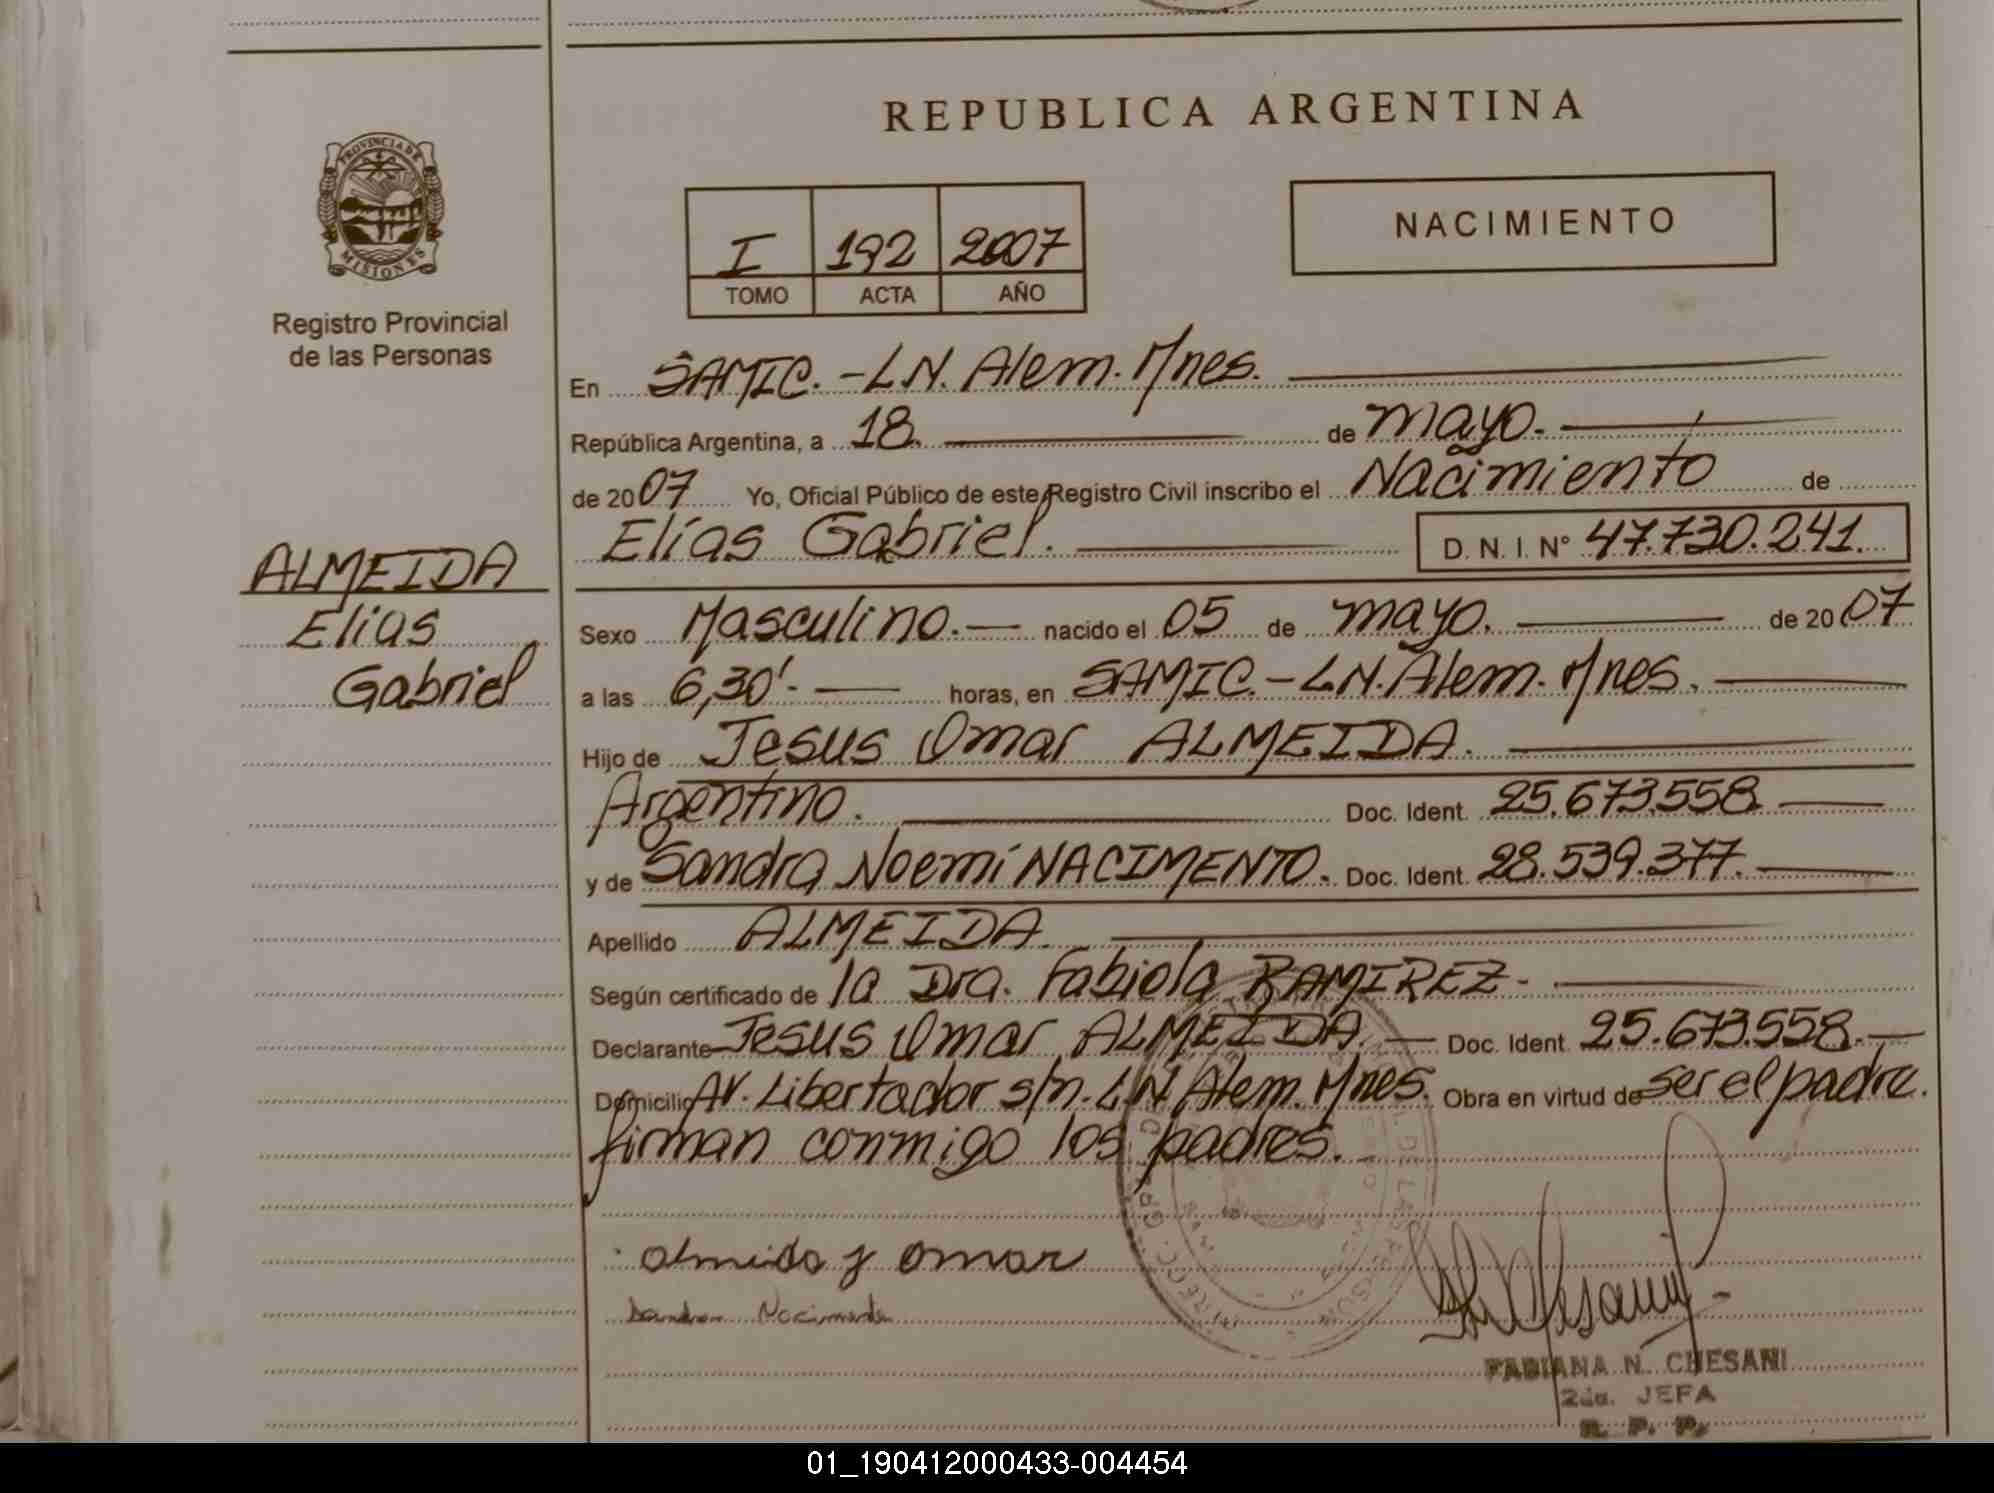 REPUBLICA ARGENTINA
PROVINCIA DE
MISIONES
Registro Provincial
de las Personas
I 192 2007
TOMO ACTA AÑO
NACIMIENTO
En SAMIC.-L.N. Alem. M/nes.
República Argentina, a 18. de mayo.
de 2007 Yo, Oficial Público de este Registro Civil inscribo el Nacimiento de
Elías Gabriel. D. N. I. Nº 47.730.241.
ALMEIDA
Elías
Gabriel
Sexo Masculino. nacido el 05 de mayo. de 2007
a las 6,30'- horas, en SAMIC.-L.N. Alem. M/nes.
Hijo de Jesus Omar ALMEIDA.
Argentino. Doc. Ident. 25.673.558
y de Sandra Noemí NACIMENTO. Doc. Ident. 28.539.377.
Apellido ALMEIDA.
Según certificado de la Dra. Fabiola RAMIREZ-
Declarante Jesus Omar ALMEIDA. Doc. Ident. 25.673.558.
Domicilio Av. Libertador s/n. L.N. Alem. M/nes. Obra en virtud de ser el padre.
firman conmigo los padres.
almeida j omar
Sandra Nacimento
FABIANA N. CHESANI
2da. JEFA
R. P. P.
01_190412000433-004454